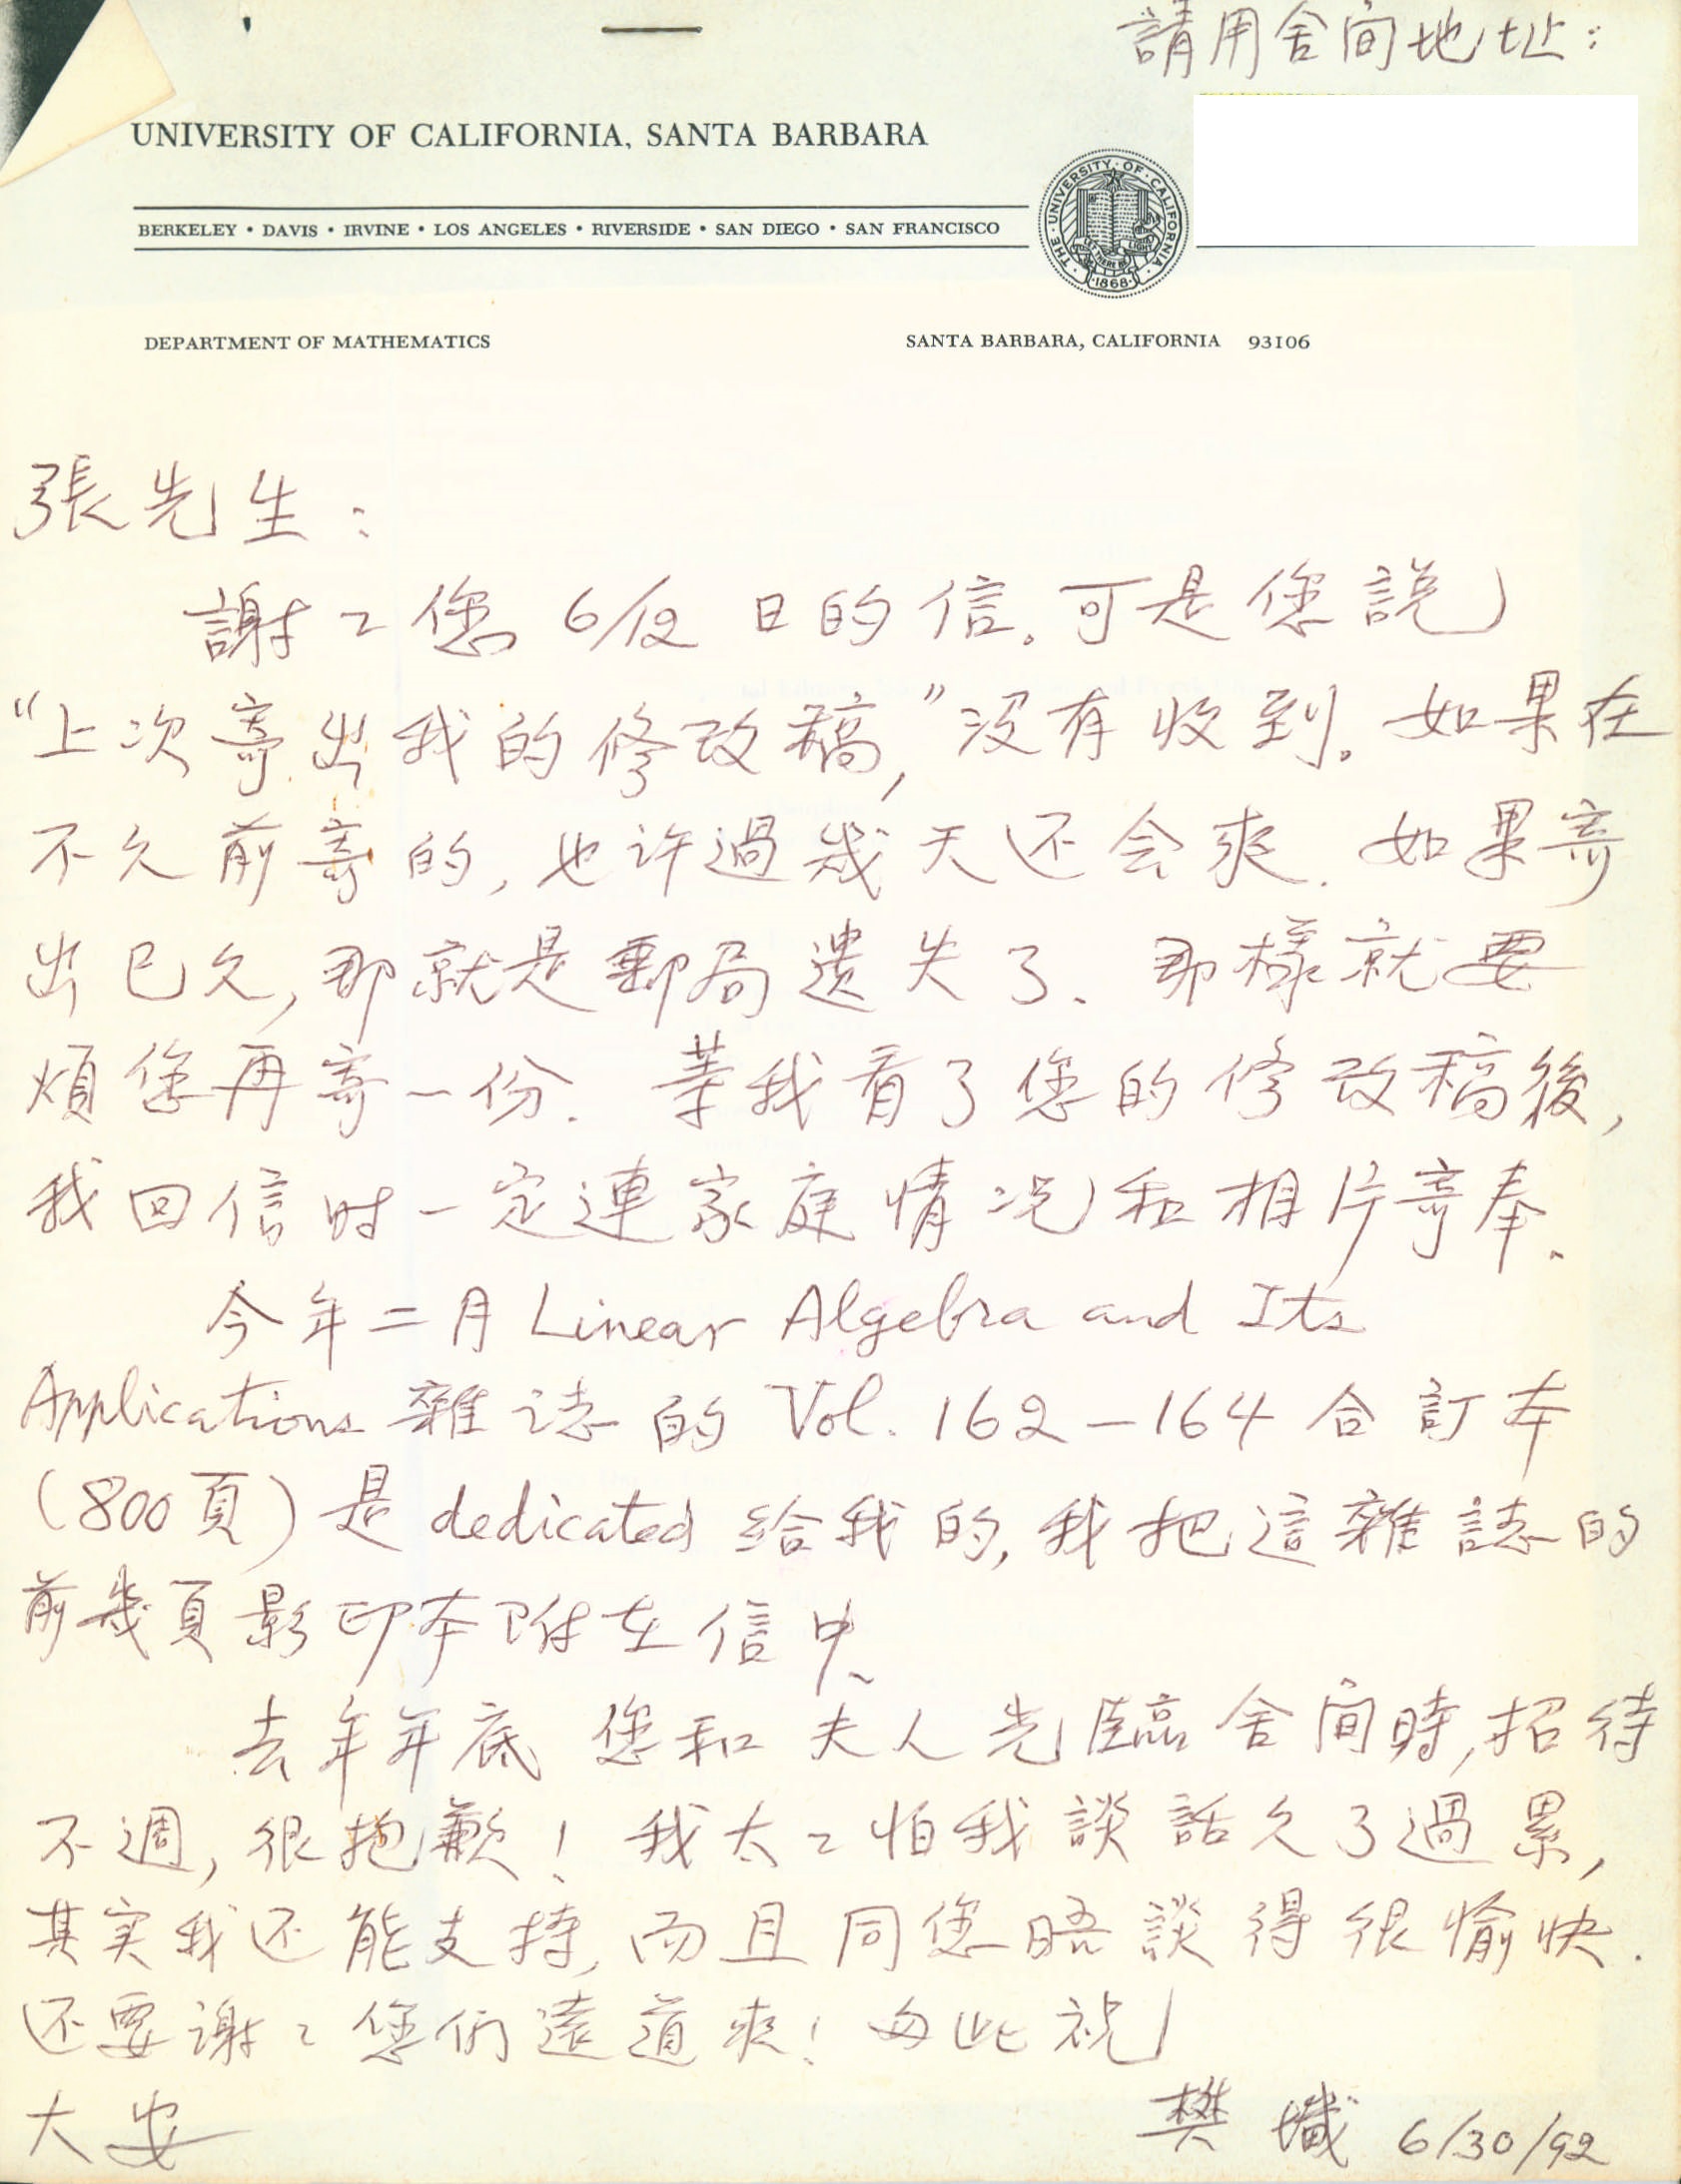 請用舍间地址:
UNIVERSITY OF CALIFORNIA, SANTA BARBARA
BERKELEY • DAVIS • IRVINE • LOS ANGELES • RIVERSIDE • SAN DIEGO • SAN FRANCISCO
THE UNIVERSITY OF CALIFORNIA
LET THERE BE LIGHT
1868
DEPARTMENT OF MATHEMATICS
SANTA BARBARA, CALIFORNIA 93106
張先生:
謝々您 6/12 日的信。可是您説
“上次寄出我的修改稿,”沒有收到。如果在
不久前寄的,也许過幾天还会來. 如果寄
出已久,那就是郵局遺失了、那樣就要
煩您再寄一份. 等我看了您的修改稿後,
我回信时一定連家庭情况和相片寄奉、
今年二月 Linear Algebra and Its
Applications 雜誌的 Vol. 162–164 合訂本
(800頁)是 dedicated 给我的,我把這雜誌的
前幾頁影印本附在信中、
去年年底 您和 夫人光臨舍间時,招待
不週,很抱歉! 我太々怕我談話久了過累,
其实我还能支持,而且同您晤談得很愉快.
还要谢々您們遠道來! 匆此 祝
大安
樊𰋀 6/30/92